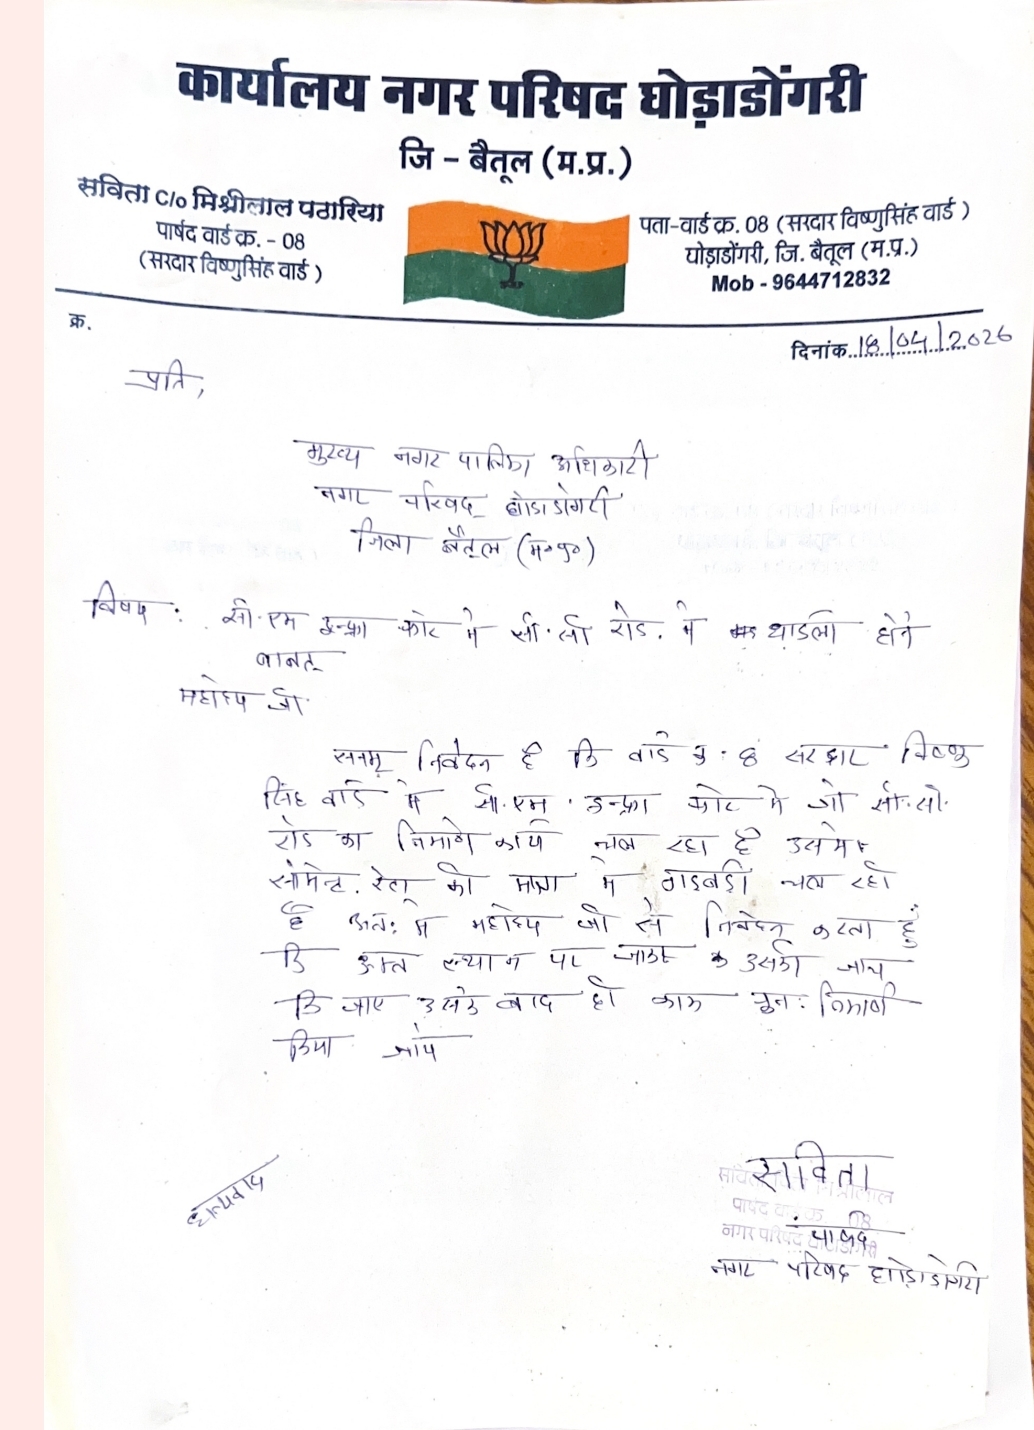 कार्यालय नगर परिषद घोड़ाडोंगरी
जि – बैतूल (म.प्र.)
सविता C/o मिश्रीलाल पठारिया
पार्षद वार्ड क्र. - 08
(सरदार विष्णुसिंह वार्ड )
पता-वार्ड क्र. 08 (सरदार विष्णुसिंह वार्ड )
घोड़ाडोंगरी, जि. बैतूल (म.प्र.)
Mob - 9644712832
क्र.
दिनांक 18/04/2026
प्रति,
मुख्य नगर पालिका अधिकारी
नगर परिषद घोडाडोंगरी
जिला बैतूल (म०प्र०)
विषय : सी.एम इन्फ्रा कोट में सी.सी रोड. में धाडली होने
बाबत्
महोदय जी
सनम्र निवेदन है कि वार्ड क्र. 8 सरदार विष्णु
सिंह वार्ड में सी.एम. इन्फ्रा कोट मे जो सी.सी.
रोड का निमार्ण कार्य चल रहा है उसमे
सीमेन्ट. रेता की मात्रा मे गडबडी चल रही
है अत: मे महोदय जी से निवेदन करता हुं
कि उक्त स्थान पर जाकर उसकी जाच
कि जाए उसके बाद ही काम पुन: निमार्ण
किया जाये
धन्यवाद
सविता
पार्षद
नगर परिषद घोडाडोंगरी